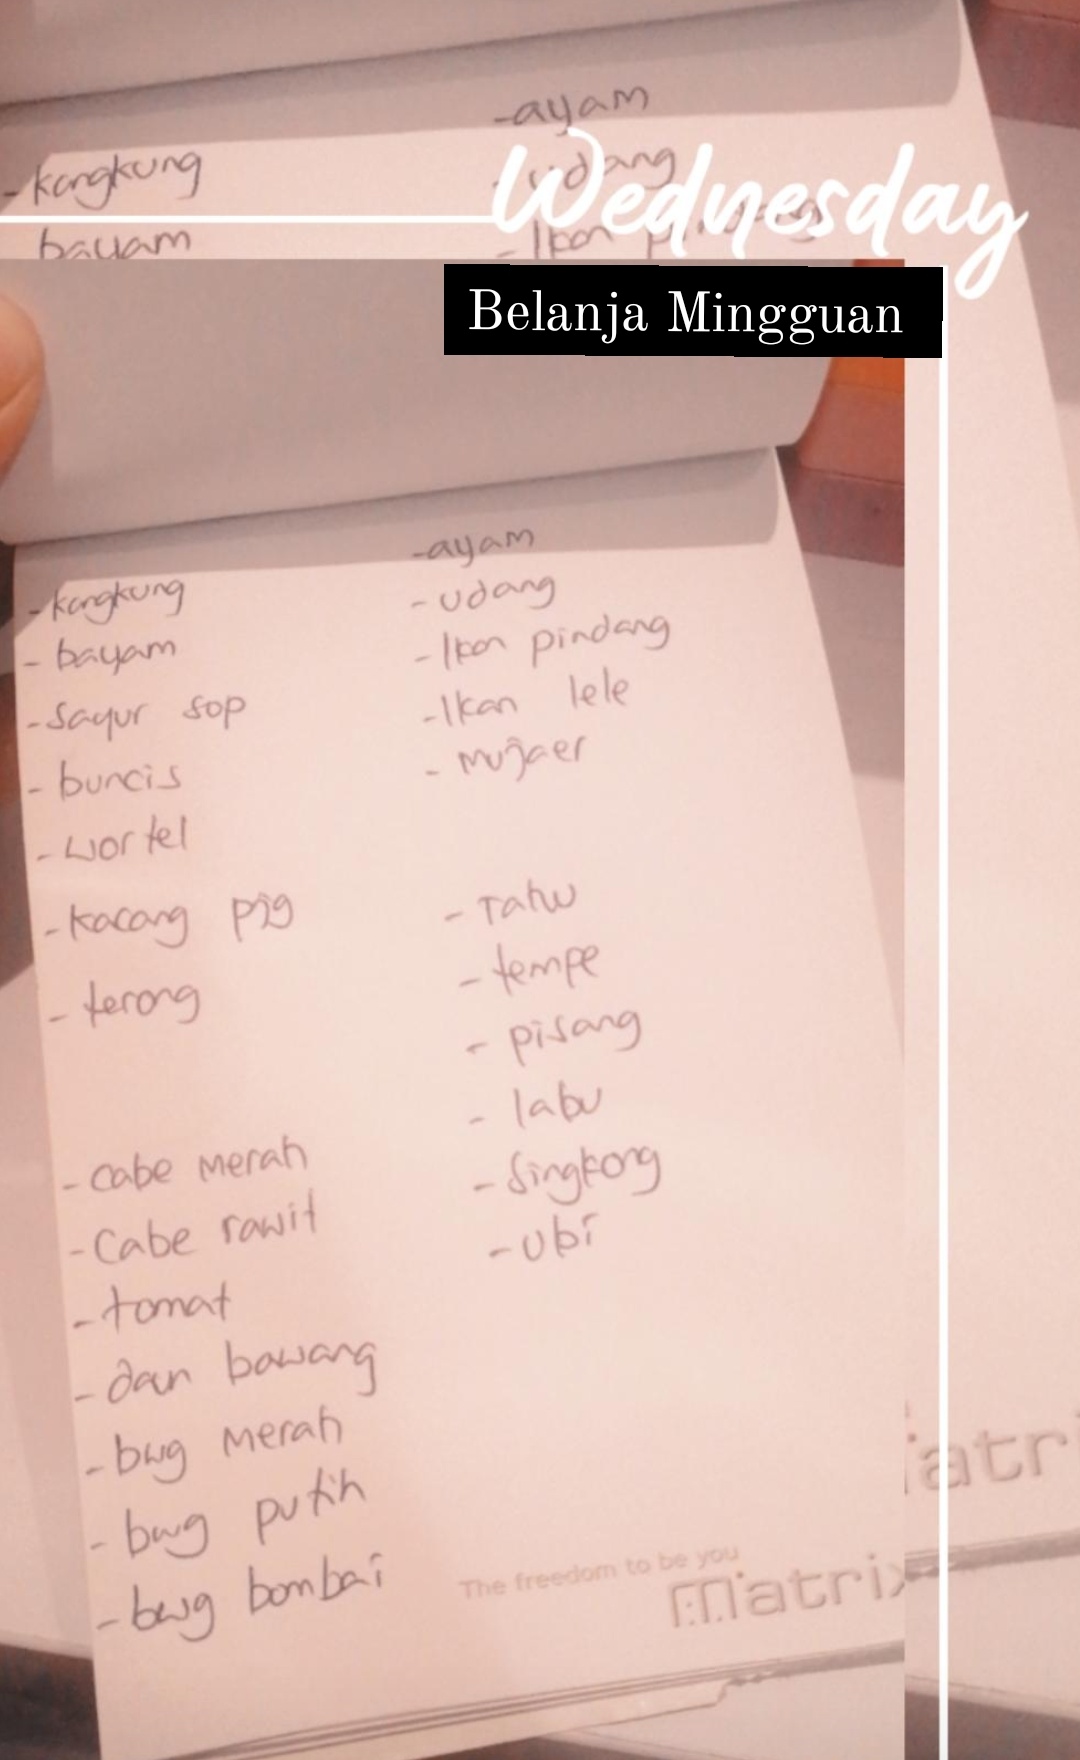 -ayam
-kangkung
-udang
bayam
-Ikan pindang
Wednesday
Belanja Mingguan
-kangkung
-bayam
-sayur sop
-buncis
-wortel
-kacang pjg
-terong
-cabe merah
-Cabe rawit
-tomat
-daun bawang
-bwg merah
-bwg putih
-bwg bombai
-ayam
-udang
-Ikan pindang
-Ikan lele
-mujaer
-Tahu
-tempe
-pisang
-labu
-singkong
-ubi
The freedom to be you
matrix
atri